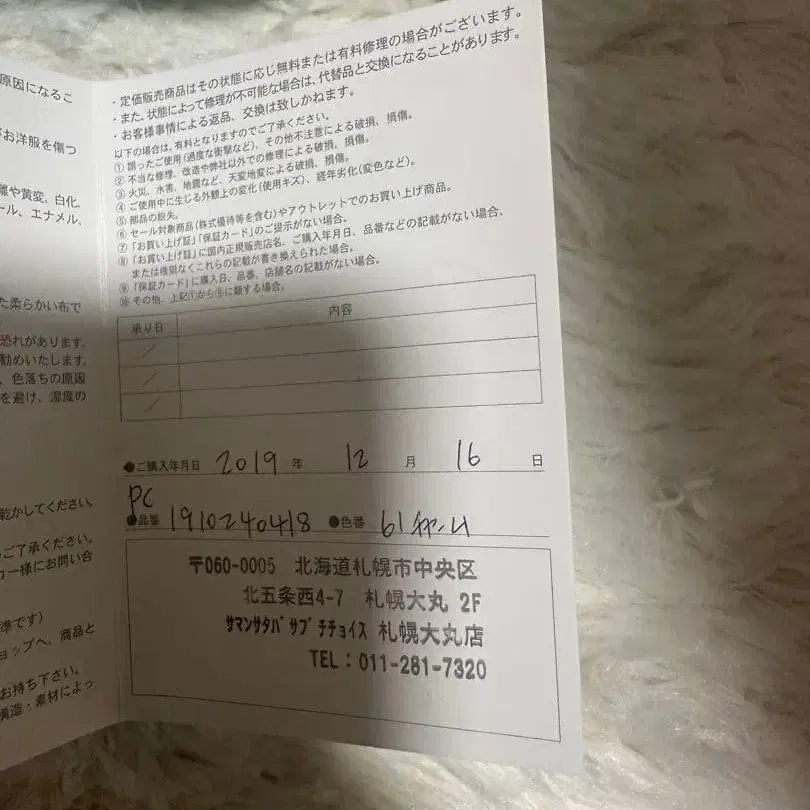 原因になるこ
お洋服を傷つ
や黄変、白化、
ール、エナメル、
た柔らかい布で
恐れがあります。
勧めいたします。
、色落ちの原因
を避け、湿度の
乾かしてください。
ご了承ください。
カー様にお問い合
準です)
ョップへ、商品と
お持ち下さい。
構造・素材によっ
・定価販売商品はその状態に応じ無料または有料修理の場合がございます。
・また、状態によって修理が不可能な場合は、代替品と交換になることがあります。
・お客様事情による返品、交換は致しかねます。
以下の場合は、有料となりますのでご了承ください。
① 誤ったご使用(過度な衝撃など)、その他不注意による破損、損傷。
② 不当な修理、改造や弊社以外での修理による破損、損傷。
③ 火災、水害、地震など、天変地変による破損、損傷。
④ ご使用中に生じる外観上の変化(使用キズ)、経年劣化(変色など)。
⑤ 部品の紛失。
⑥ セール対象商品(株式優待等を含む)やアウトレットでのお買い上げ商品。
⑦ 「お買い上げ証」「保証カード」のご提示がない場合。
⑧ 「お買い上げ証」に国内正規販売店名、ご購入年月日、品番などの記載がない場合、
または権限なくこれらの記載が書き換えられた場合。
⑨ 「保証カード」に購入日、品番、店舗名の記載がない場合。
⑩ その他、上記①から⑨に類する場合。
承り日 内容
/
/
/
●ご購入年月日 2019 年 12 月 16 日
PC
●品番 1910240418 ●色番 61
〒060-0005 北海道札幌市中央区
北五条西4-7 札幌大丸 2F
サマンサタバサプチチョイス 札幌大丸店
TEL:011-281-7320